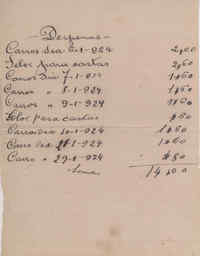 Despesas
Carros dia 6-1-924 2,00
Selos para cartas 2,60
Carros Dia 7-1-924 1,60
Carros " 8-1-924 1,60
Carros " 9-1-924
Selos para cartas
Carros dia 10-1-924 1,60
Carro dia 11-1-924 1,60
Carro " 29-1-924 ,80
Soma